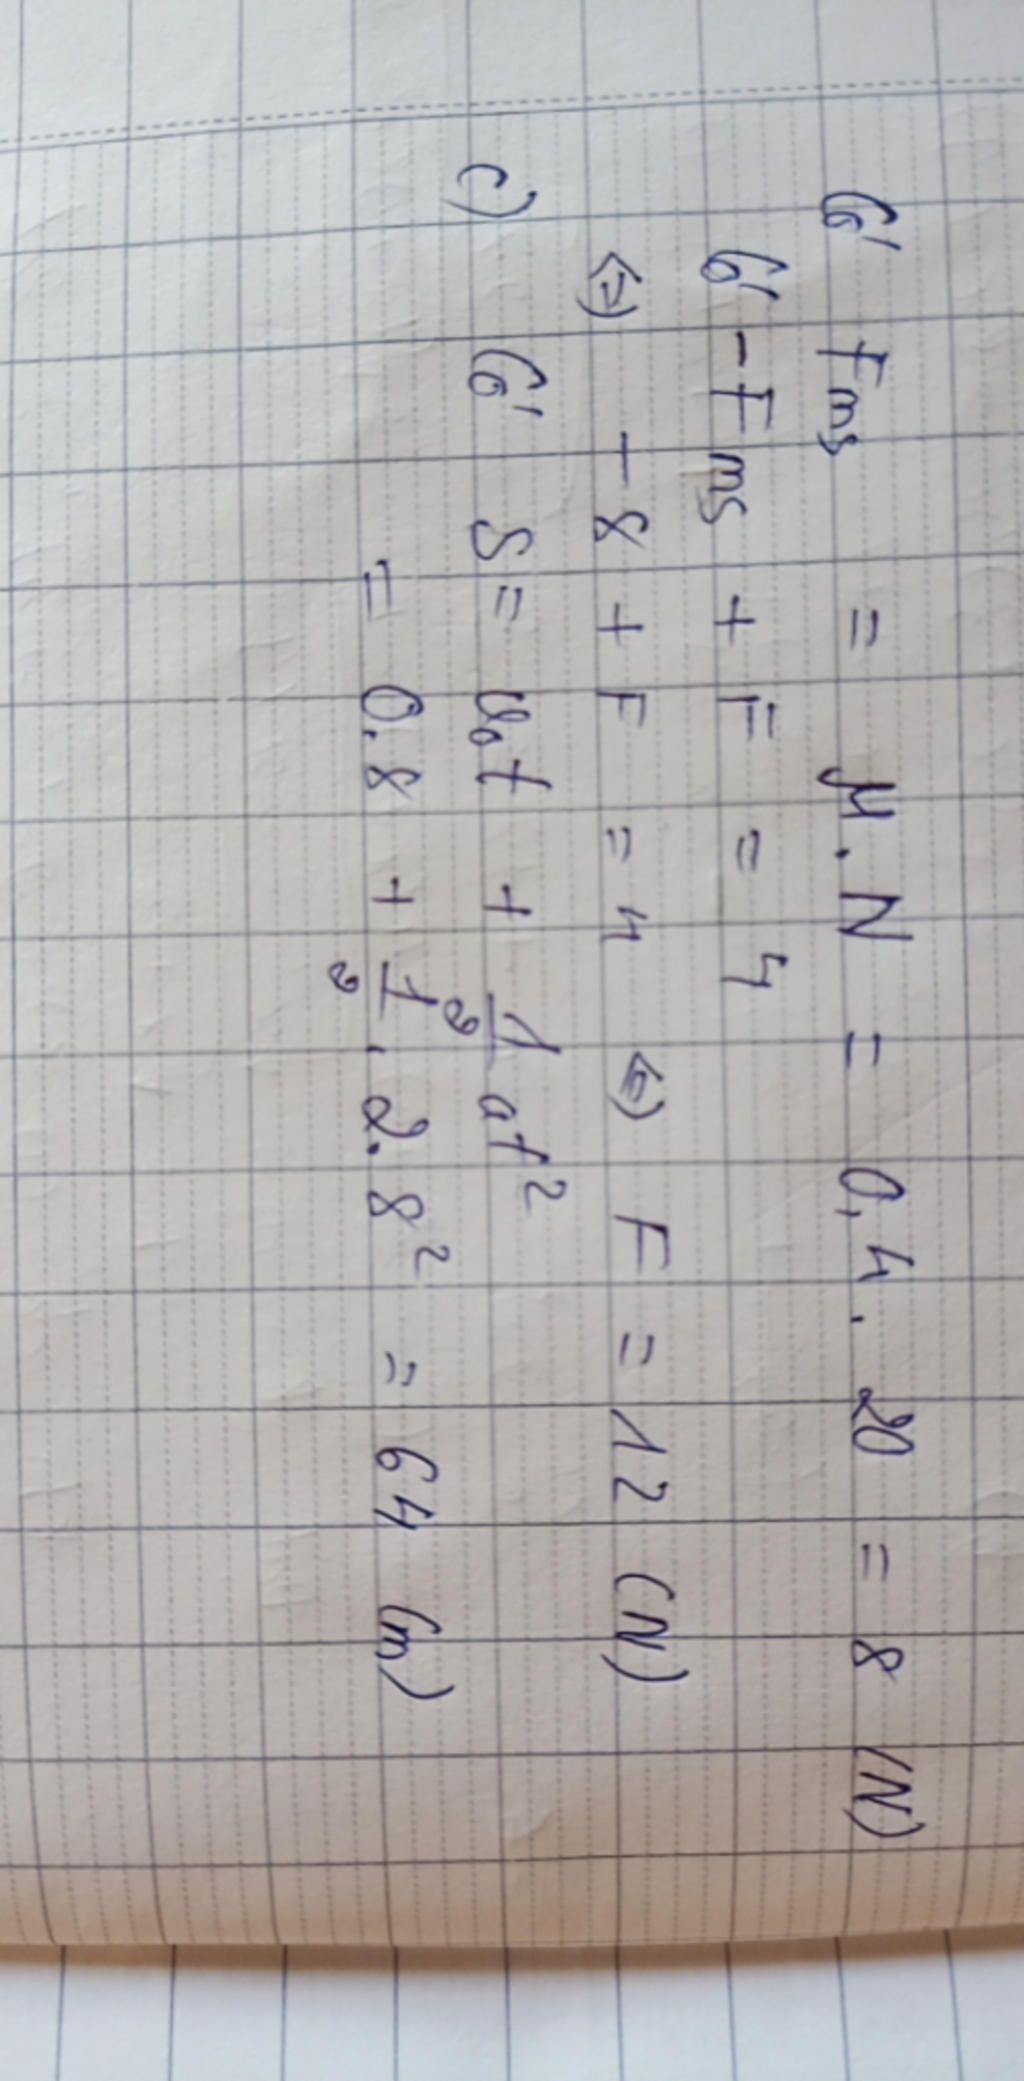 Có Fms = μ.N = 0,4.20 = 8 (N)
Có -Fms + F = 4
<=> -8 + F = 4 <=> F = 12 (N)
c) Có S = v₀t + 1/2 at²
= 0.8 + 1/2 . 2.8² = 64 (m)